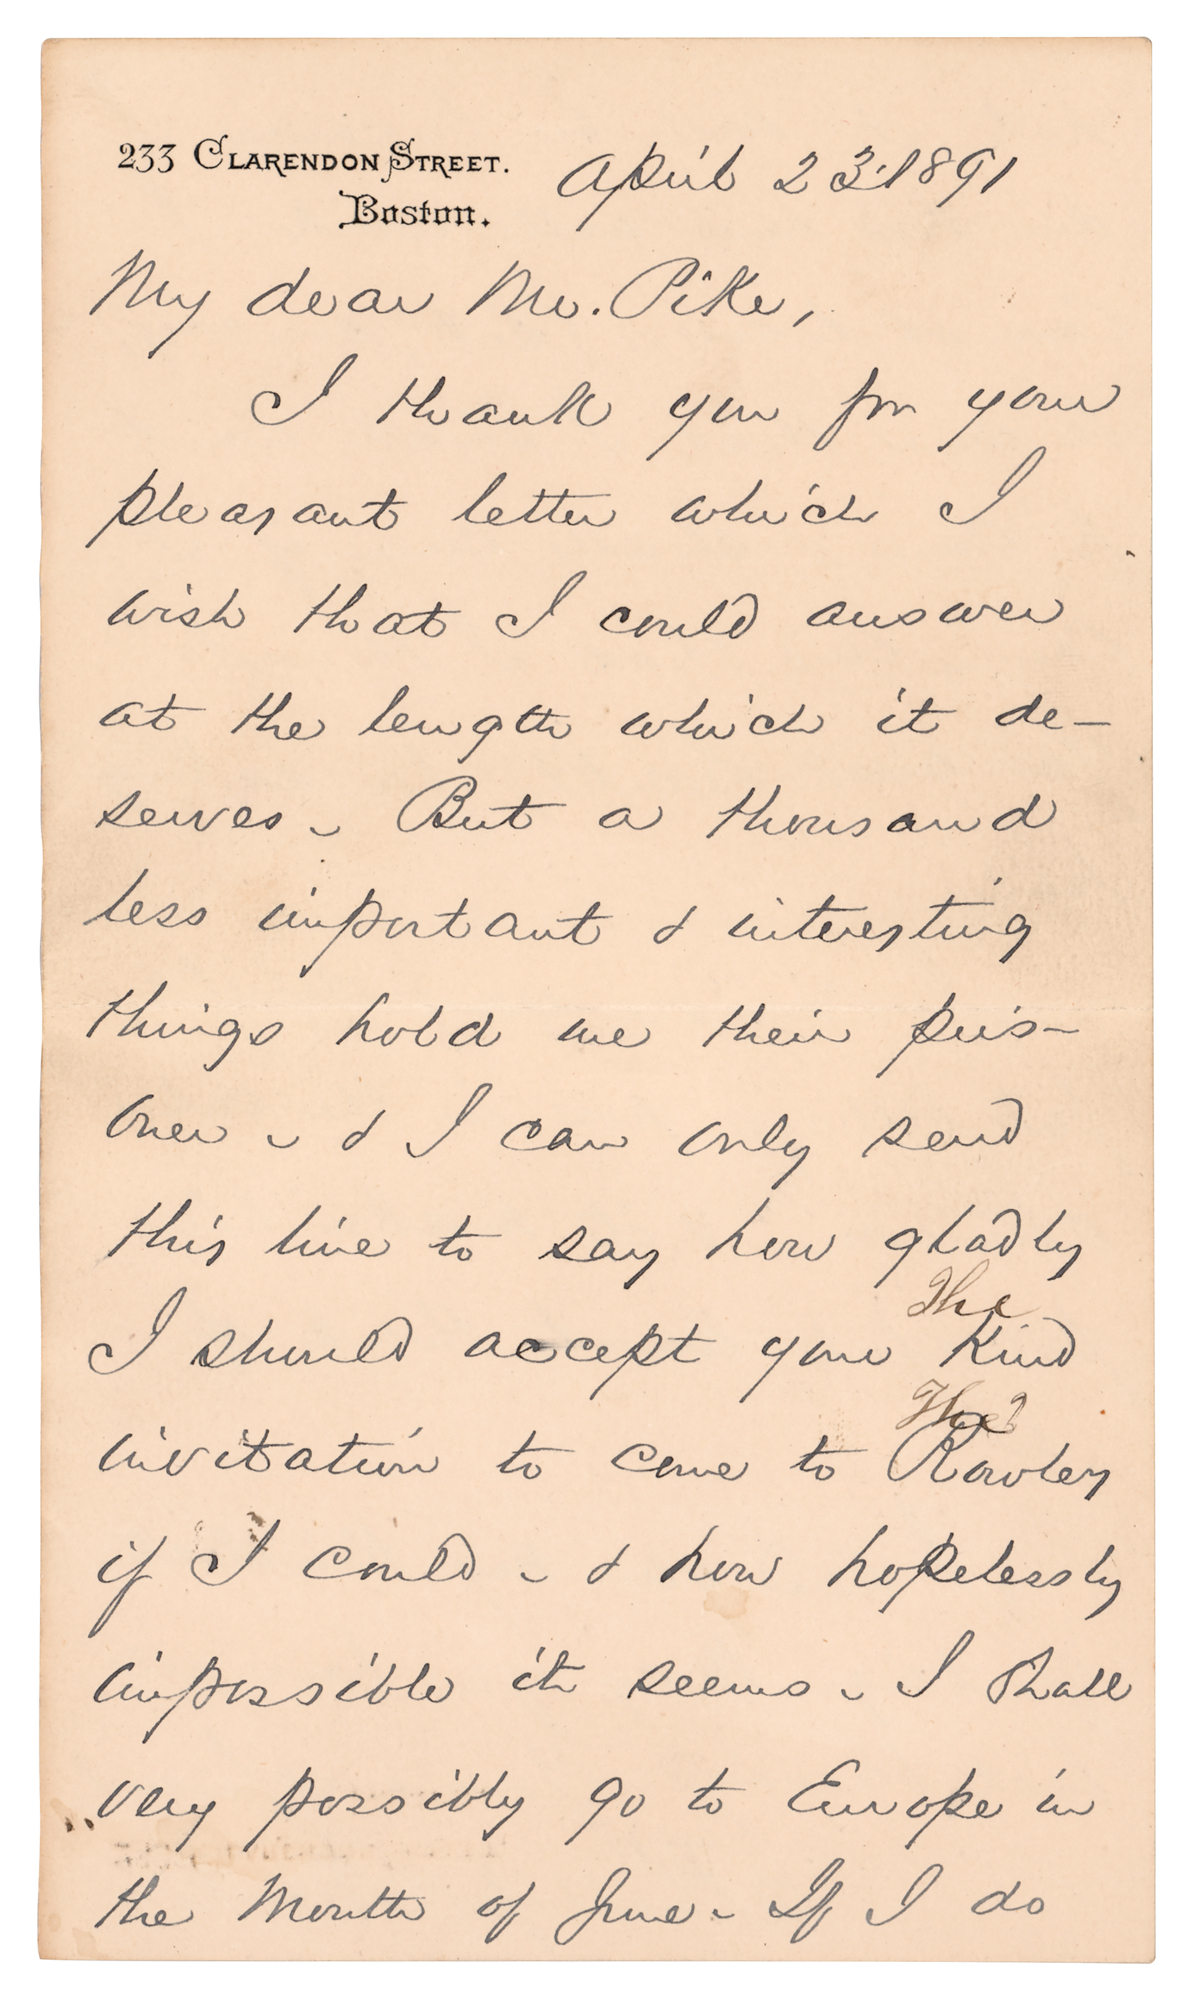 233 CLARENDON STREET. April 23. 1891
Boston.
My dear Mr. Pike,
I thank you for your
pleasant letter which I
wish that I could answer
at the length which it de-
serves - But a thousand
less important & interesting
things hold me their pris-
oner - & I can only send
this line to say how gladly
The
I should accept your kind
The
invitation to come to Rowley
if I could - & how hopelessly
impossible it seems - I shall
very possibly go to Europe in
the Month of June - If I do